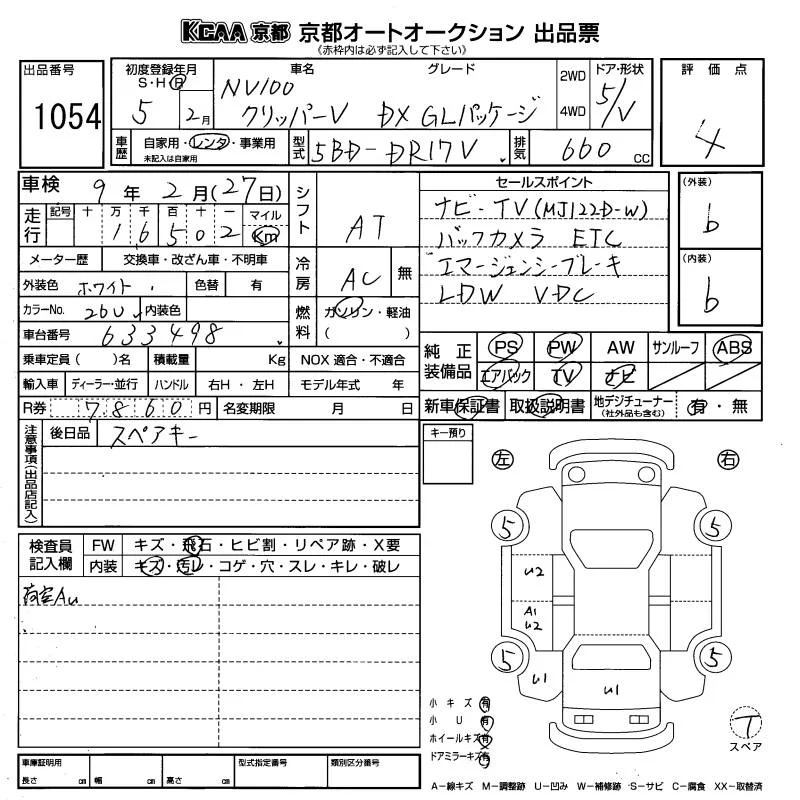 KCAA 京都 京都オートオークション 出品票
(赤枠内は必ず記入して下さい)
出品番号
1054
初度登録年月
S・H・R
5 2月
車名 グレード
NV100
クリッパーV DX GLパッケージ
2WD
4WD
ドア・形状
5/V
評価点
4
車歴
自家用・レンタ・事業用
未記入は自家用
型式
5BD-DR17V
排気
660 cc
車検 9年2月(27日)
走行
記号 十 万 千 百 十 一 マイル
1 6 5 0 2 Km
メーター歴 交換車・改ざん車・不明車
外装色 ホワイト 色替 有
カラーNo. 26U 内装色
車台番号 633498
乗車定員( )名 積載量 Kg
輸入車 ディーラー・並行 ハンドル 右H・左H
R券 7860円 名変期限 月 日
シフト AT
冷房 AC 無
燃料 ガソリン・軽油
( )
NOX 適合・不適合
モデル年式 年
セールスポイント
ナビ-TV(MJ122D-W)
バックカメラ ETC
エマージェンシーブレーキ
LDW VDC
(外装)
b
(内装)
b
純正装備品
PS PW AW サンルーフ ABS
エアバック TV ナビ
新車保証書 取扱説明書 地デジチューナー
(社外品も含む)
有・無
注意事項(出品店記入)
後日品 スペアキー
キー預り
左 右
検査員記入欄
FW キズ・飛石・ヒビ割・リペア跡・X要
内装 キズ・汚レ・コゲ・穴・スレ・キレ・破レ
荷室AU
5 5
U2
A1
U2
5 5
U1
U1
小キズ 有
小U 有
ホイールキズ 有
ドアミラーキズ 有
T
スペア
車庫証明用
長さ cm 幅 cm 高さ cm
型式指定番号
類別区分番号
A-線キズ M-調整跡 U-凹み W-補修跡 S-サビ C-腐食 XX-取替済